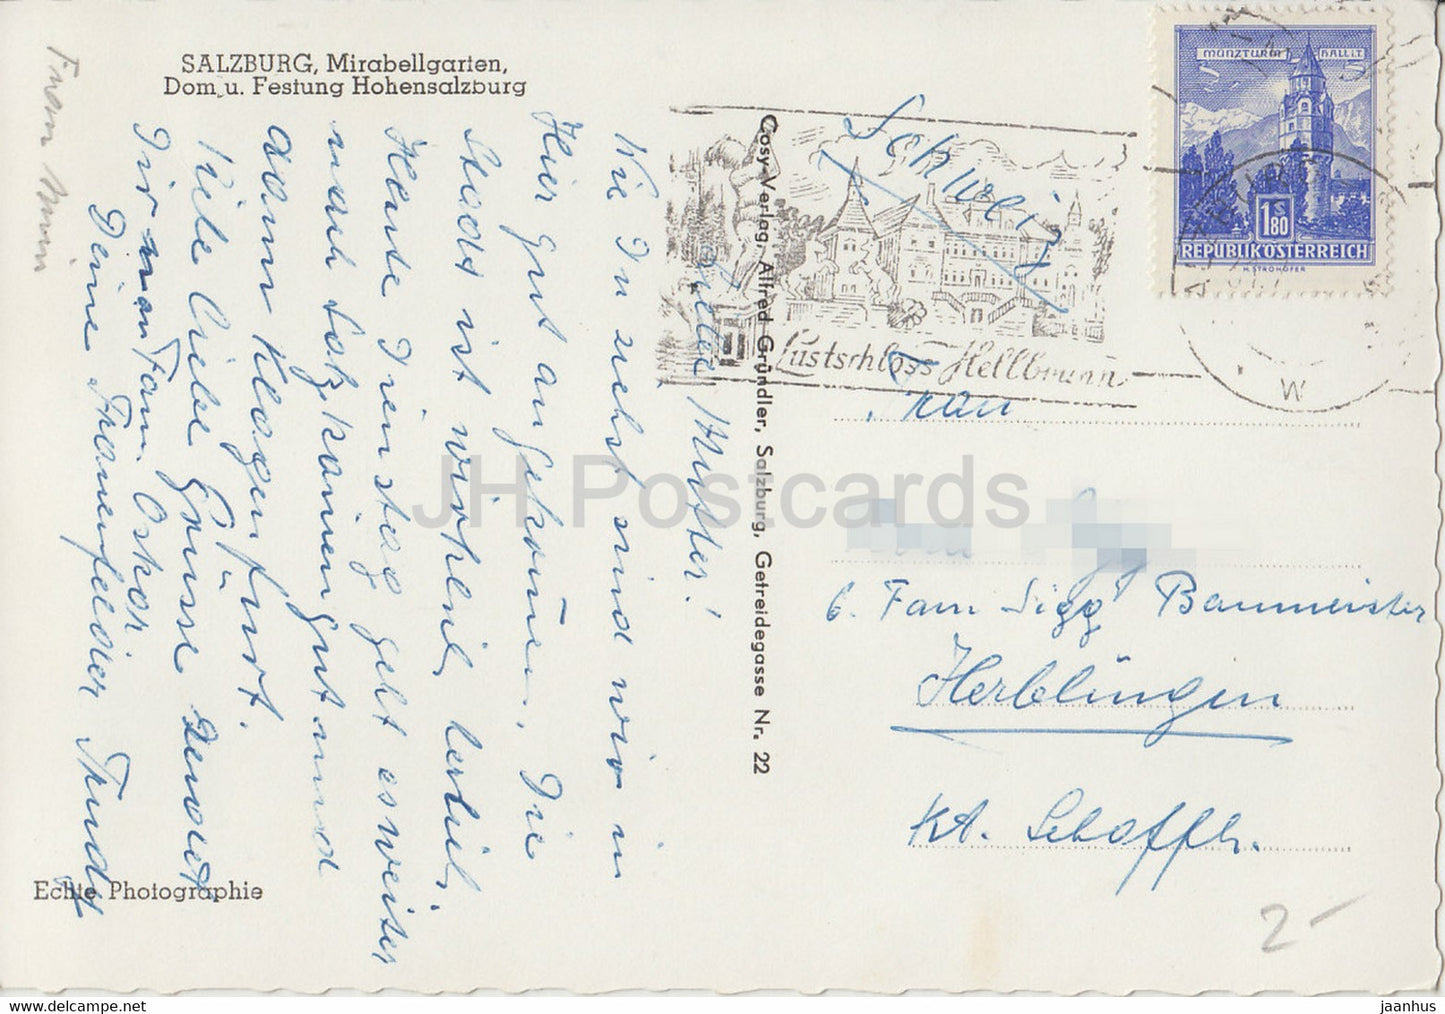 SALZBURG, Mirabellgarten,
Dom u. Festung Hohensalzburg
Liebe Mutter!
Wie Du siehst sind wir in
Hier gut angekomen. Die
Stadt ist wirklich herlich.
Heute Dienstag geht es weiter
nach
dann Klagenfurt.
Viele liebe Grüsse sendet
Dir von Fam. Oskar
Deine Frauenfelder Trudy
Echte Photographie
Cosy-Verlag, Alfred Gründler, Salzburg, Getreidegasse Nr. 22
Schweiz
Lustschloss Hellbrunn
MÜNZTURM HALL I.T.
1S80
REPUBLIK ÖSTERREICH
H. STROHOFER
W
Frau
b. Fam Sigg Baumeister
Herblingen
Kt. Schaffh.
2-
JH Postcards
www.delcampe.net
jaanhus